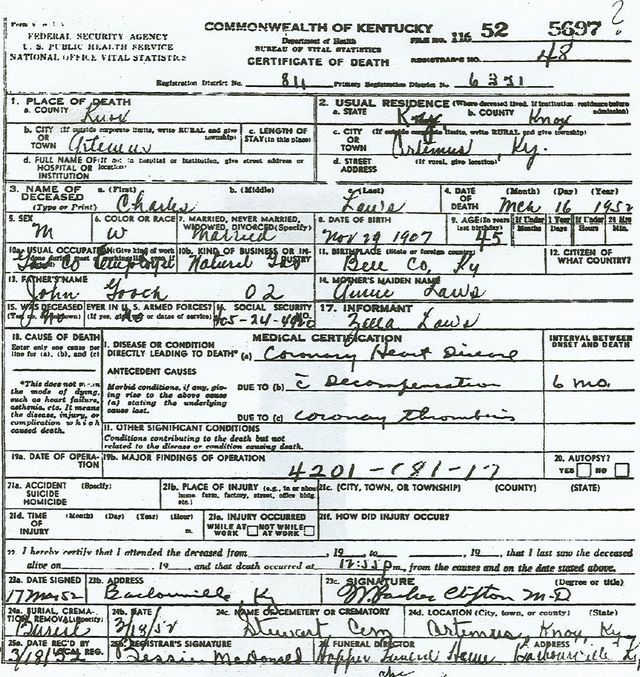 ?
FEDERAL SECURITY AGENCY
U. S. PUBLIC HEALTH SERVICE
NATIONAL OFFICE VITAL STATISTICS
COMMONWEALTH OF KENTUCKY
Department of Health
BUREAU OF VITAL STATISTICS
CERTIFICATE OF DEATH
FILE NO. 116 52 5697
REGISTRAR'S NO. 48
Registration District No. 811 Primary Registration District No. 6331
1. PLACE OF DEATH
a. COUNTY Knox
2. USUAL RESIDENCE (Where deceased lived. If institution residence before admission)
a. STATE Ky b. COUNTY Knox
b. CITY (If outside corporate limits, write RURAL and give township) OR TOWN Artemus
c. LENGTH OF STAY (in this place)
c. CITY (If outside corporate limits, write RURAL and give township) OR TOWN Artemus Ky.
d. FULL NAME OF (If not in hospital or institution, give street address or location) HOSPITAL OR INSTITUTION
d. STREET ADDRESS (If rural, give location)
3. NAME OF DECEASED (Type or Print)
a. (First) Charles
b. (Middle)
c. (Last) Laws
4. DATE OF DEATH (Month) (Day) (Year) Mch 16 1952
5. SEX M
6. COLOR OR RACE W
7. MARRIED, NEVER MARRIED, WIDOWED, DIVORCED (Specify) Married
8. DATE OF BIRTH Nov 29 1907
9. AGE (In years last birthday) 45 If Under 1 Year Months Days If Under 24 Hrs. Hours Min.
10a. USUAL OCCUPATION (Give kind of work done during most of working life, even if retired) Gas Co Employee
10b. KIND OF BUSINESS OR INDUSTRY Natural Gas
11. BIRTHPLACE (State or foreign country) Bell Co, Ky
12. CITIZEN OF WHAT COUNTRY?
13. FATHER'S NAME John Gooch 02
14. MOTHER'S MAIDEN NAME Annie Laws
15. WAS DECEASED EVER IN U. S. ARMED FORCES? (Yes, no, or unknown) (If yes, give war or dates of service) No
16. SOCIAL SECURITY NO. 405-24-4920
17. INFORMANT Zella Laws
18. CAUSE OF DEATH
Enter only one cause per line for (a), (b), and (c)
MEDICAL CERTIFICATION
INTERVAL BETWEEN ONSET AND DEATH
I. DISEASE OR CONDITION DIRECTLY LEADING TO DEATH* (a) Coronary Heart Disease
ANTECEDENT CAUSES
Morbid conditions, if any, giving rise to the above cause (a) stating the underlying cause last.
DUE TO (b) c̄ Decompensation 6 mo.
DUE TO (c) coronary thrombosis
*This does not mean the mode of dying, such as heart failure, asthenia, etc. It means the disease, injury, or complication which caused death.
II. OTHER SIGNIFICANT CONDITIONS
Conditions contributing to the death but not related to the disease or condition causing death.
19a. DATE OF OPERATION
19b. MAJOR FINDINGS OF OPERATION
4201-181-17
20. AUTOPSY? YES NO
21a. ACCIDENT SUICIDE HOMICIDE (Specify)
21b. PLACE OF INJURY (e.g., in or about home, farm, factory, street, office bldg. etc.)
21c. (CITY, TOWN, OR TOWNSHIP) (COUNTY) (STATE)
21d. TIME OF INJURY (Month) (Day) (Year) (Hour) m.
21e. INJURY OCCURRED WHILE AT WORK NOT WHILE AT WORK
21f. HOW DID INJURY OCCUR?
22. I hereby certify that I attended the deceased from 19 to 19 , that I last saw the deceased
alive on 19 , and that death occurred at 12:55 p m., from the causes and on the date stated above.
23a. DATE SIGNED 17 Mar 52
23b. ADDRESS Barbourville, Ky
23c. SIGNATURE (Degree or title) Clifton M-D
24a. BURIAL, CREMATION, REMOVAL (Specify) Burial
24b. DATE 3/18/52
24c. NAME OF CEMETERY OR CREMATORY Stewart Cem
24d. LOCATION (City, town, or county) (State) Artemus, Knox, Ky
25a. DATE REC'D BY LOCAL REG. 3/18/52
25b. REGISTRAR'S SIGNATURE Jessie McDonald
26. FUNERAL DIRECTOR ADDRESS Hopper Funeral Home Barbourville Ky